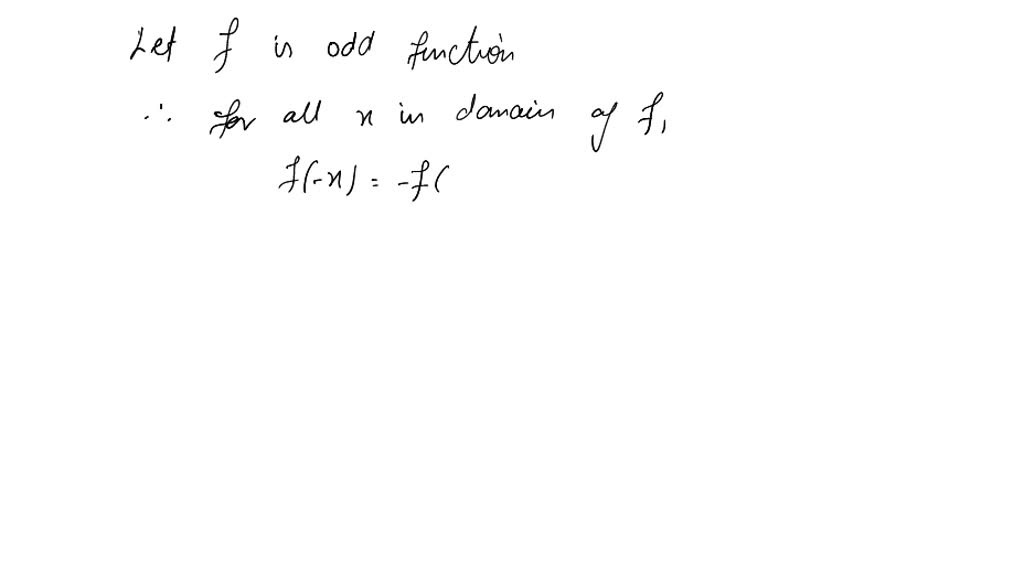 Let f is odd function
∴ for all x in domain of f,
f(-x) = -f(